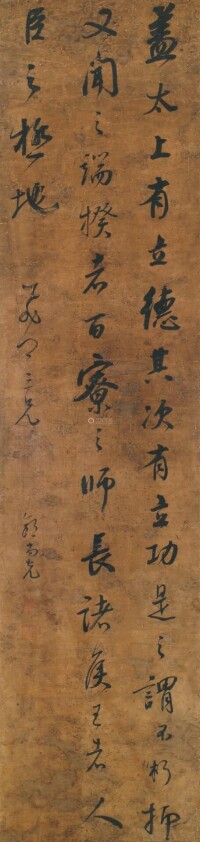 蓋太上有立德其次有立功是之謂不朽抑
又聞之端揆者百寮之師長諸侯王者人
臣之極地